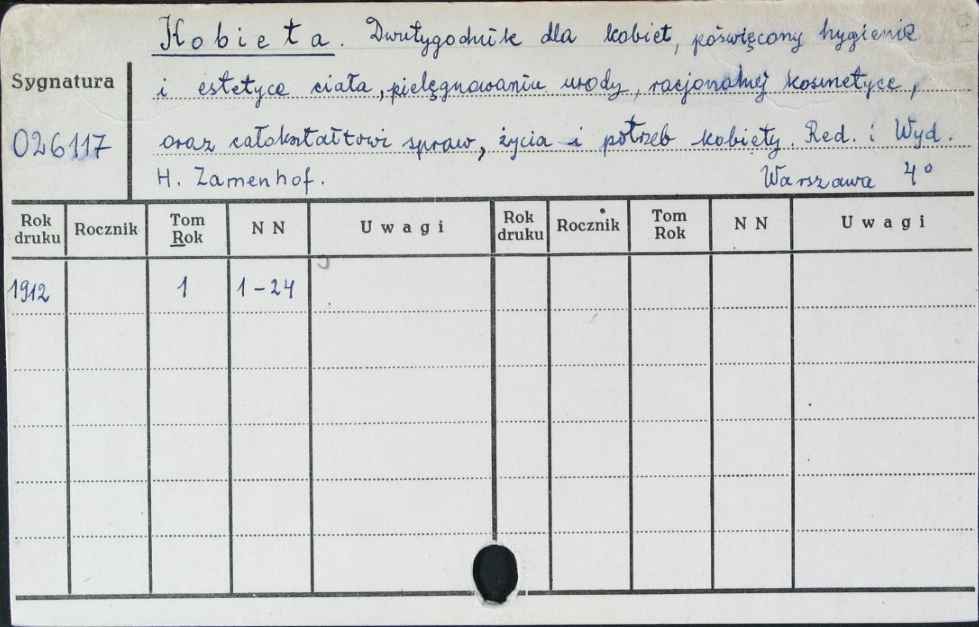 Kobieta. Dwutygodnik dla kobiet, poświęcony hygienie
Sygnatura
i estetyce ciała, pielęgnowaniu urody, racjonalnej kosmetyce,
026117
oraz całokształtowi spraw, życia i potrzeb kobiety. Red. i Wyd.
H. Zamenhof. Warszawa 4°
Rok druku Rocznik Tom Rok N N Uwagi Rok druku Rocznik Tom Rok N N Uwagi
1912 1 1-24